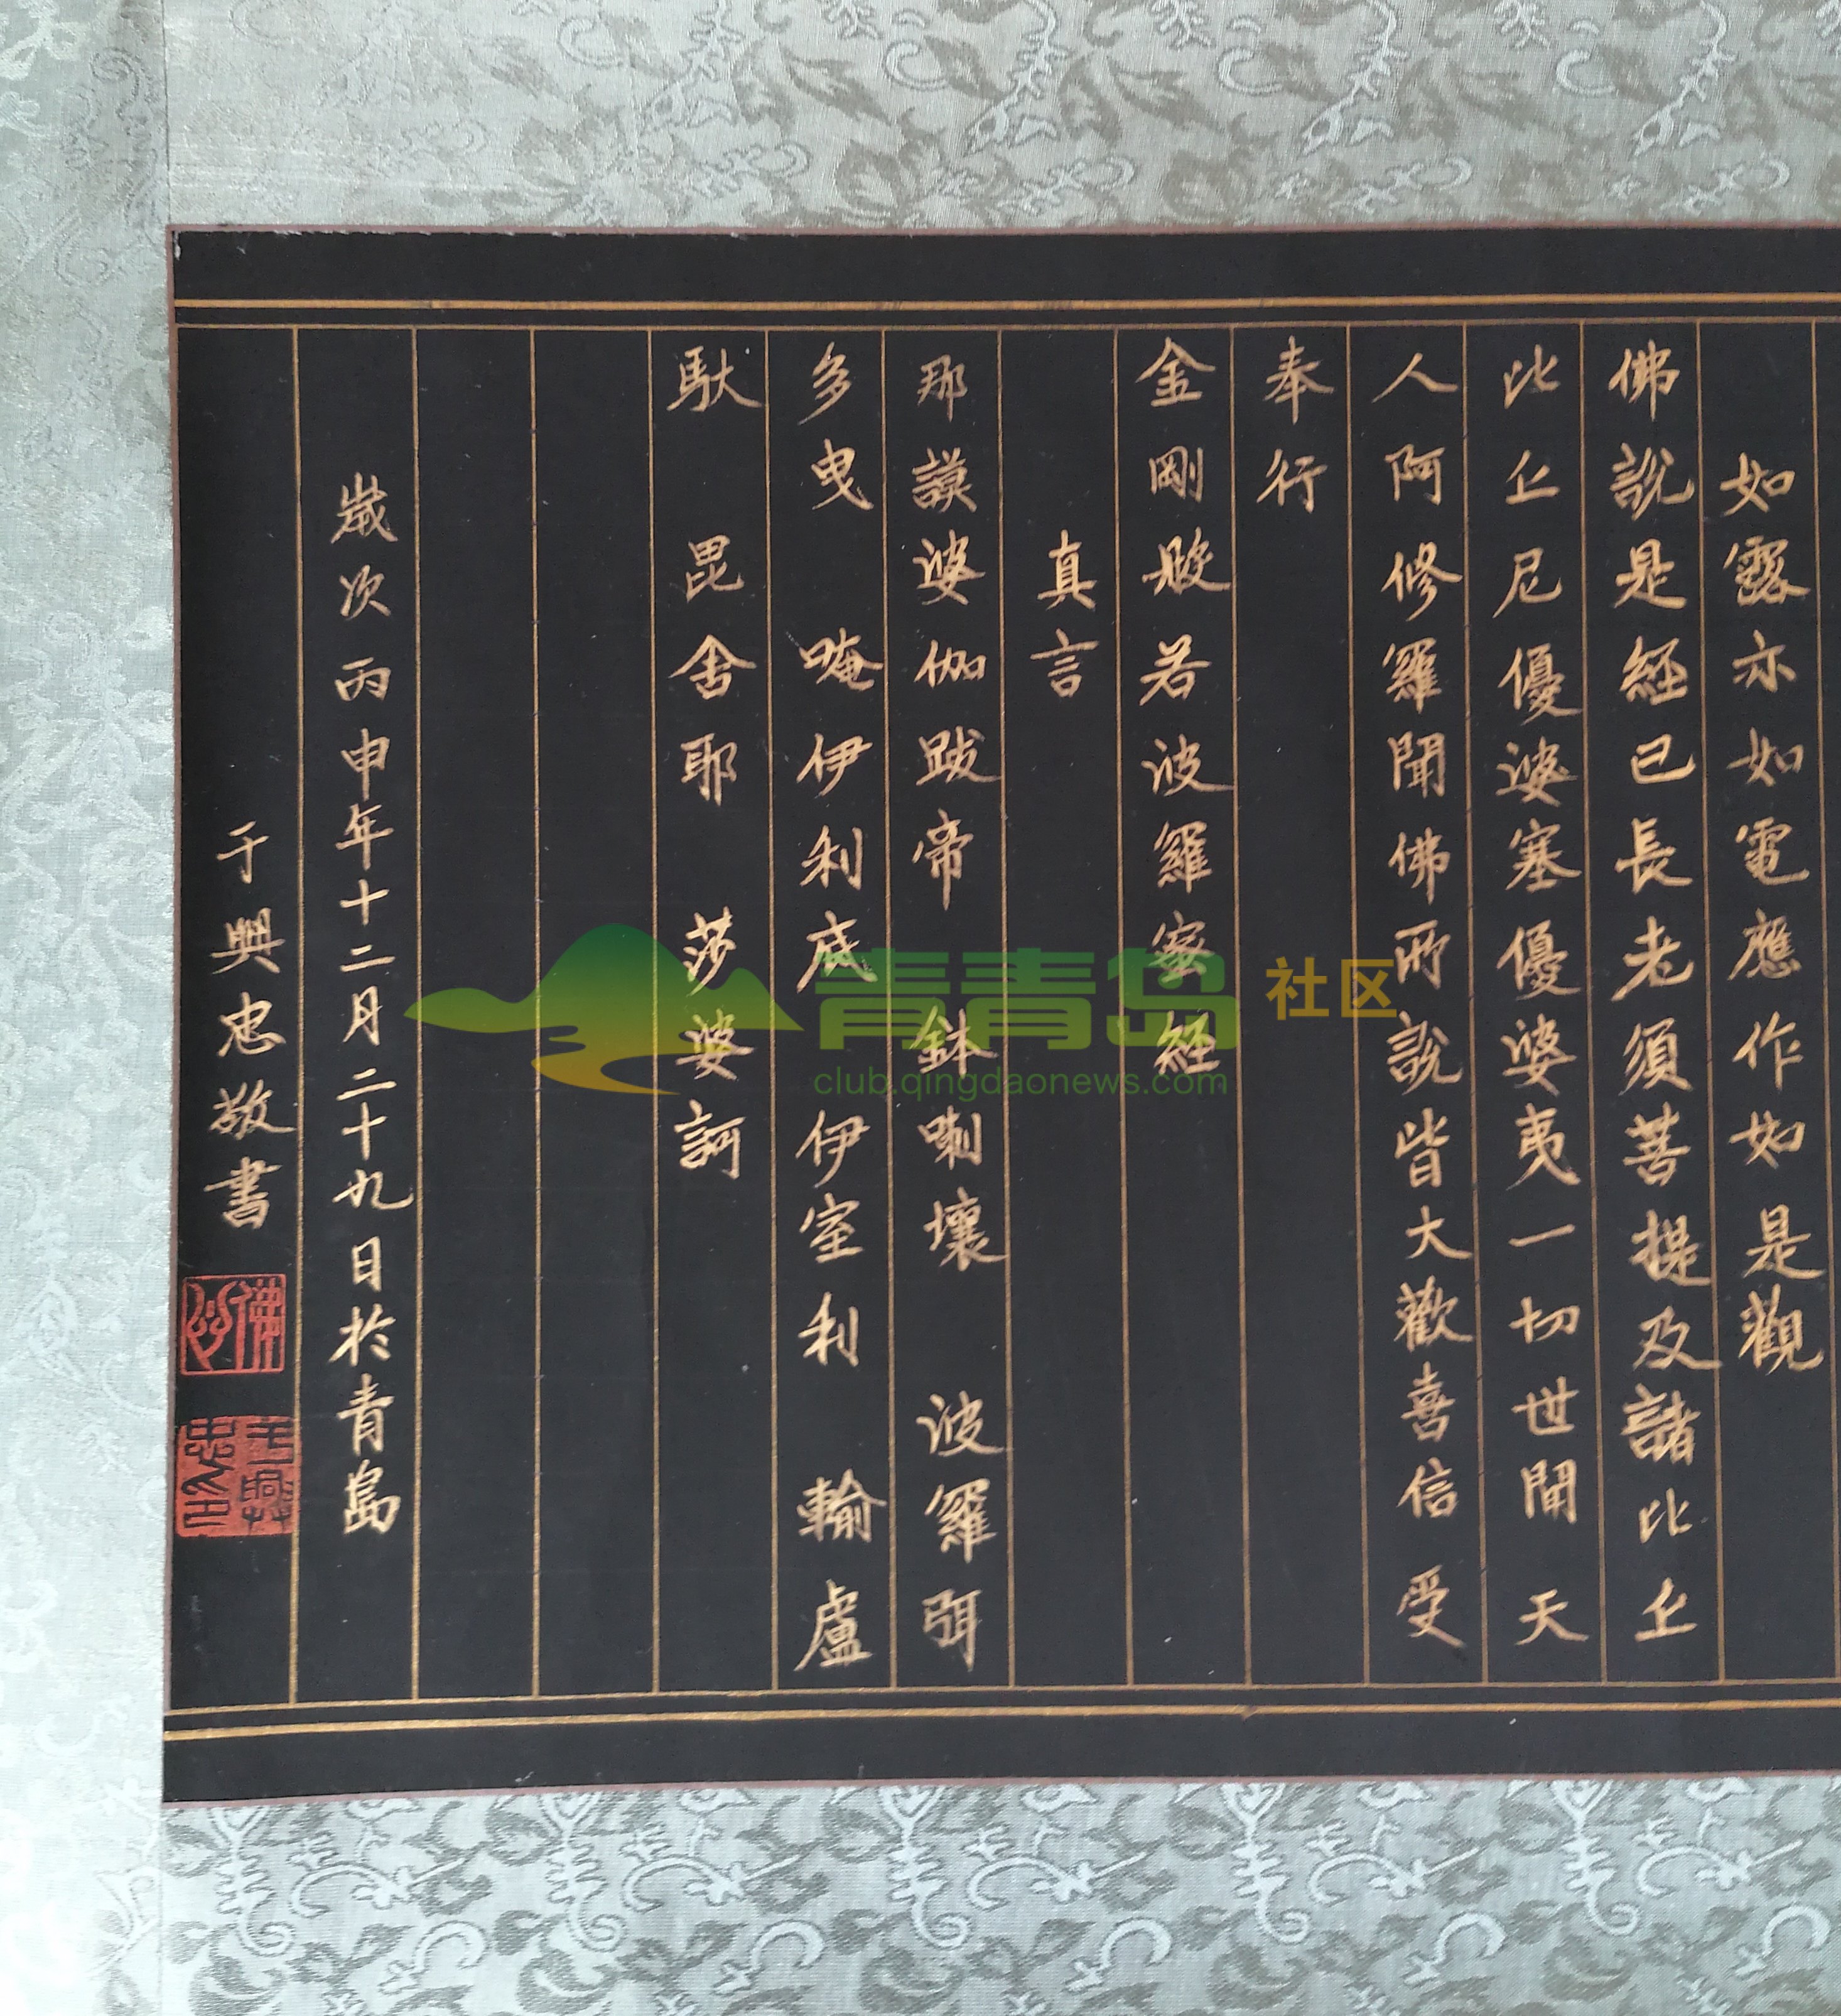 如露亦如電應作如是觀
佛說是經已長老須菩提及諸比丘
比丘尼優婆塞優婆夷一切世間天
人阿修羅聞佛所說皆大歡喜信受
奉行
金剛般若波羅蜜經
真言
那謨婆伽跋帝 鉢喇壤 波羅弭
多曳 唵伊利底 伊室利 輸盧
馱 毘舍耶 莎婆訶
歲次丙申年十二月二十九日於青島
于興忠敬書
佛心
于興忠印
青青岛社区
club.qingdaonews.com